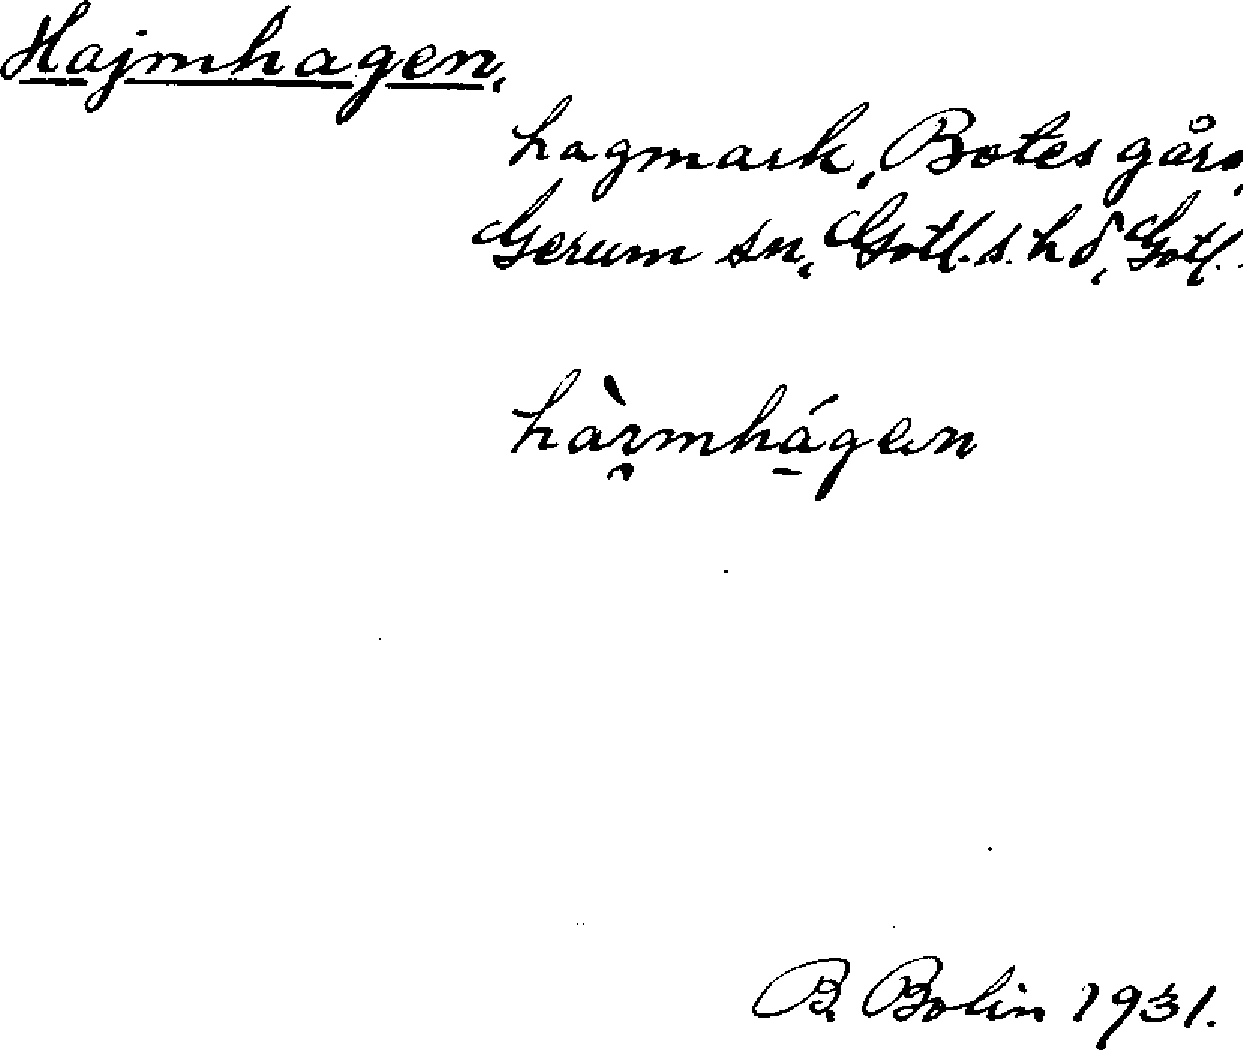 Hajmhagen,
hagmark, Botes gård,
Gerum sn, Gotl. s. hd, Gotl.
B. Bolin 1931.